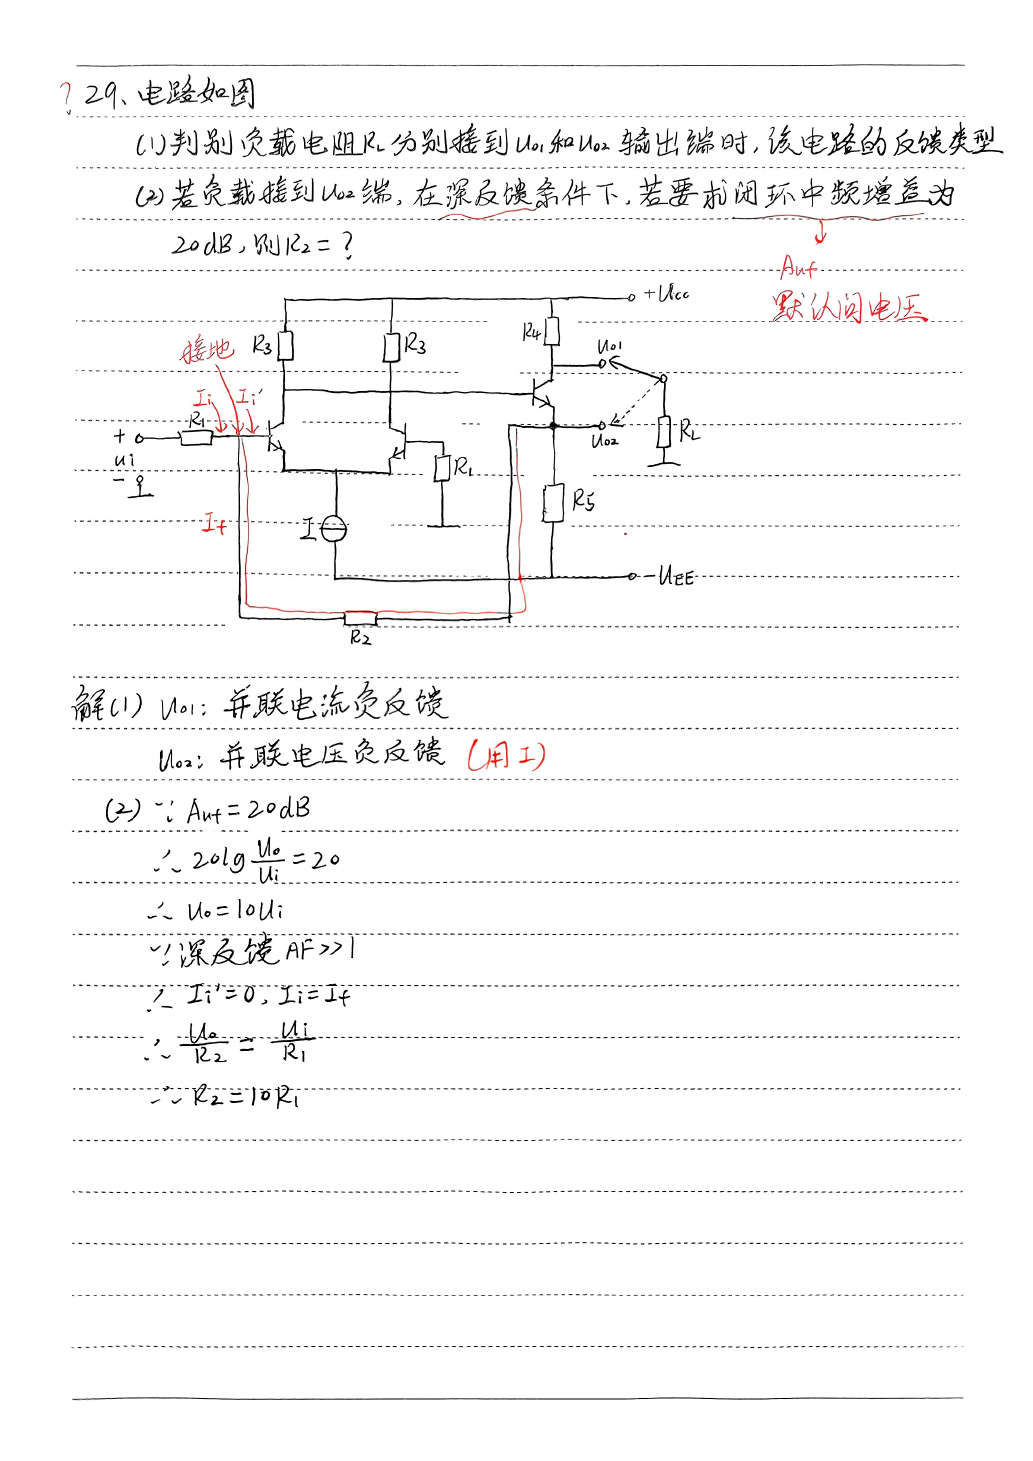 ? 29、电路如图
(1)判别负载电阻RL分别接到Uo1和Uo2输出端时,该电路的反馈类型
(2)若负载接到Uo2端,在深反馈条件下,若要求闭环中频增益为
20dB,则R2=?
Auf
默认问电压
+Ucc
R3
R3
R4
Uo1
接地
Ii
Ii'
R1
+
ui
-
R1
Uo2
RL
If
I
R5
-UEE
R2
解(1) Uo1: 并联电流负反馈
Uo2: 并联电压负反馈 (用I)
(2) ∵ Auf=20dB
∴ 20lg Uo/Ui =20
∴ Uo=10Ui
∵深反馈 AF>>1
∴ Ii'=0, Ii=If
∴ Uo/R2 = Ui/R1
∴ R2=10R1